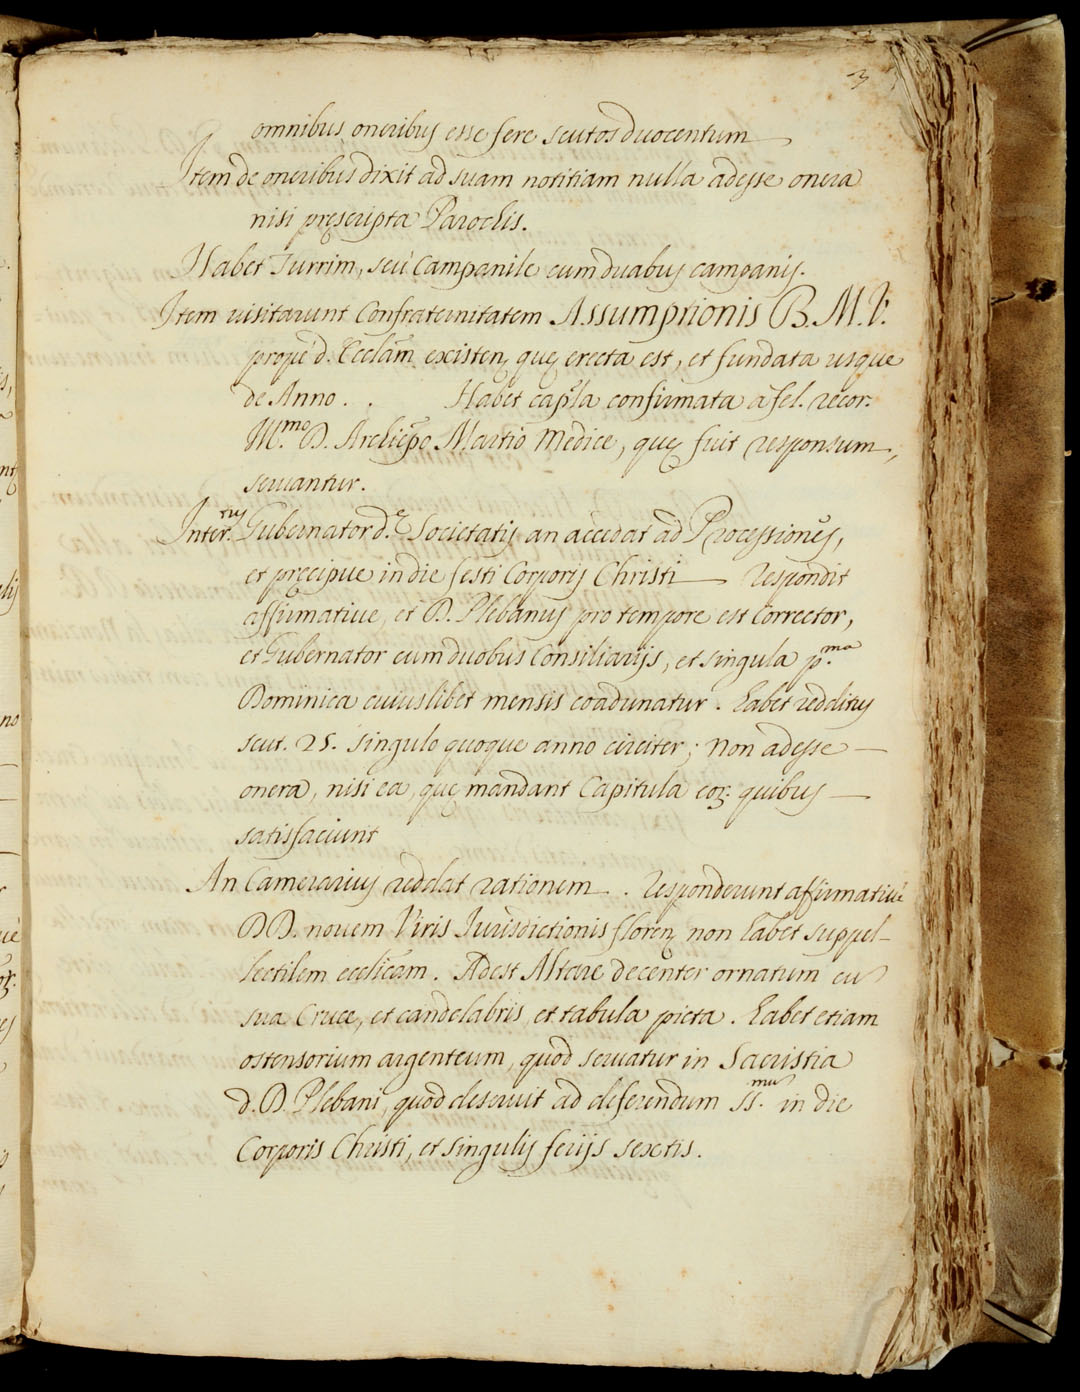 3
omnibus oneribus esse fere scutos duocentum
Item de oneribus dixit ad suam notitiam nulla adesse onera
nisi pręscripta Parochis.
Habet Turrim, seù Campanile cum duabus campanis.
Item visitarunt Confraternitatem Assumptionis B. M. V.
propè d. Ecclām existen, quę erecta est, et fundata usque
de Anno . . Habet capla confirmata a fel. recor.
Ill.mo D. Archiepo Martio Medice, quę fuit responsum,
seruantur.
Inter.rus Gubernator d.ę Societatis an accedat ad Processiones,
et pręcipue in die festi Corporis Christi Respondit
affirmatiue, et D. Plebanus pro tempore est Corrector,
et Gubernator cum duobus Consiliarijs, et singula p.ma
Dominica cuiuslibet mensis coadunatur. habet redditus
scut. 25. singulo quoque anno circiter; non adesse
onera, nisi ea, quę mandant Capitula eor: quibus
satisfaciunt
An Camerarius reddat rationem. Responderunt affirmatiuè
DD. nouem Viris Jurisdictionis floren, non habet suppel-
lectilem ecclicam. Adest Altare decenter ornatum cu
sua Cruce, et candelabris et tabula picta. habet etiam
ostensorium argenteum, quod seruatur in Sacristia
d. D. Plebani, quod deseruit ad deferendum SS.mu in die
Corporis Christi, et singulis ferijs sextis.